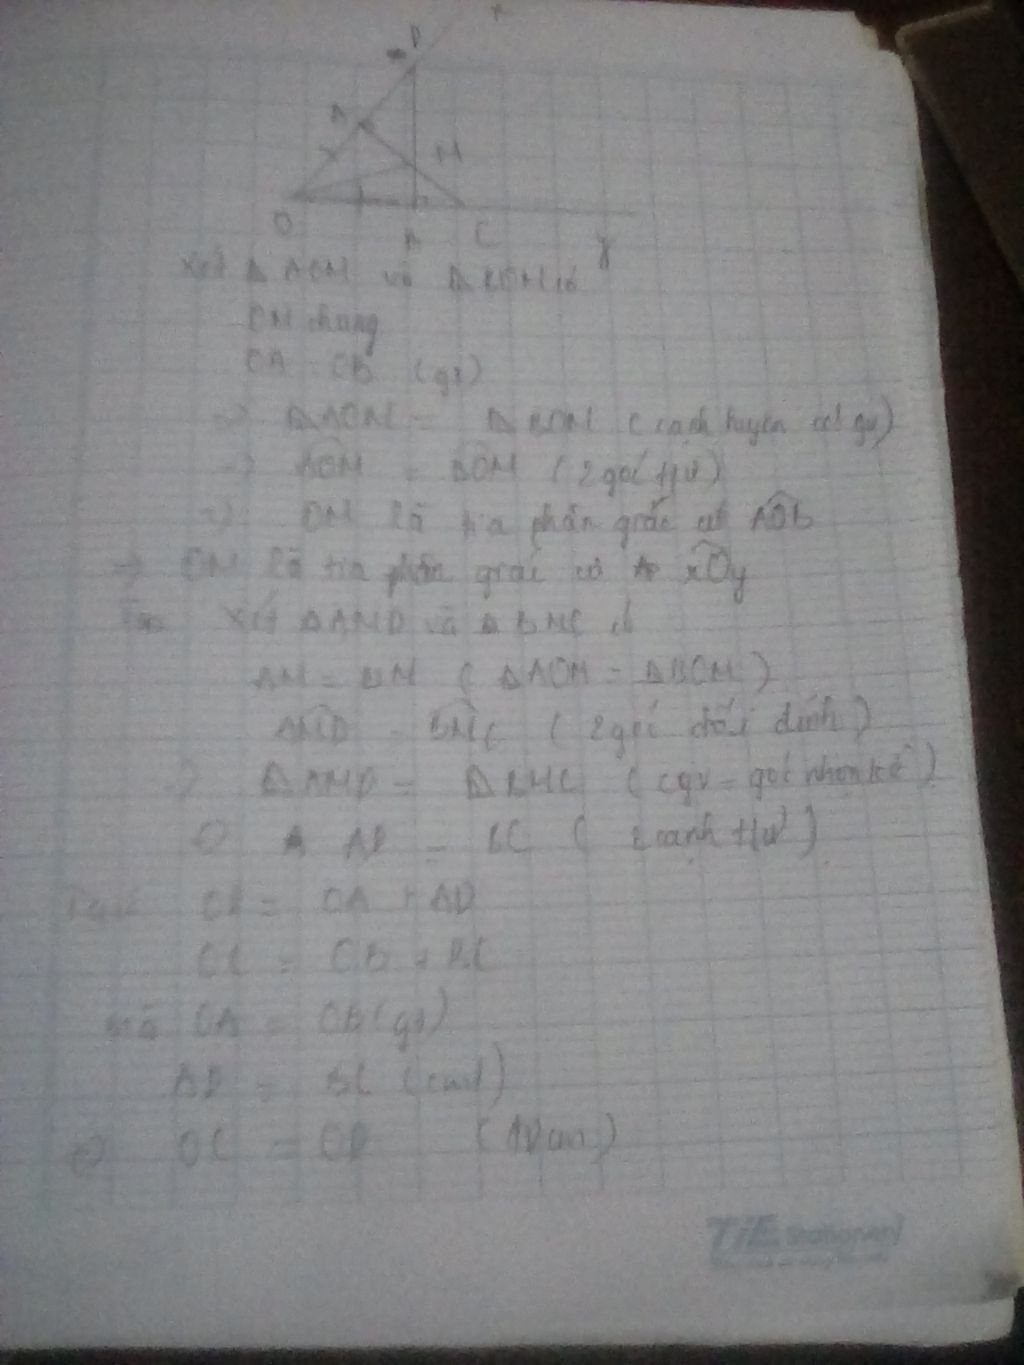 x
D
A
M
O
B C
y
Xét Δ AOM và Δ BOM có
OM chung
OA = OB (gt)
=> ΔAOM = Δ BOM (cạnh huyền cạnh gv)
=> AOM = BOM (2 góc t/ư)
=> OM là tia phân giác của AOB
=> OM là tia phân giác của xOy
Xét ΔAMD và ΔBMC có
AM = BM (ΔAOM = ΔBOM)
AMD = BMC (2 góc đối đỉnh)
=> ΔAMD = ΔBMC (cgv - góc nhọn kề)
=> AD = BC (2 cạnh t/ư)
OD = OA + AD
OC = OB + BC
mà OA = OB (gt)
AD = BC (cmt)
=> OC = OD
TiE Stationery